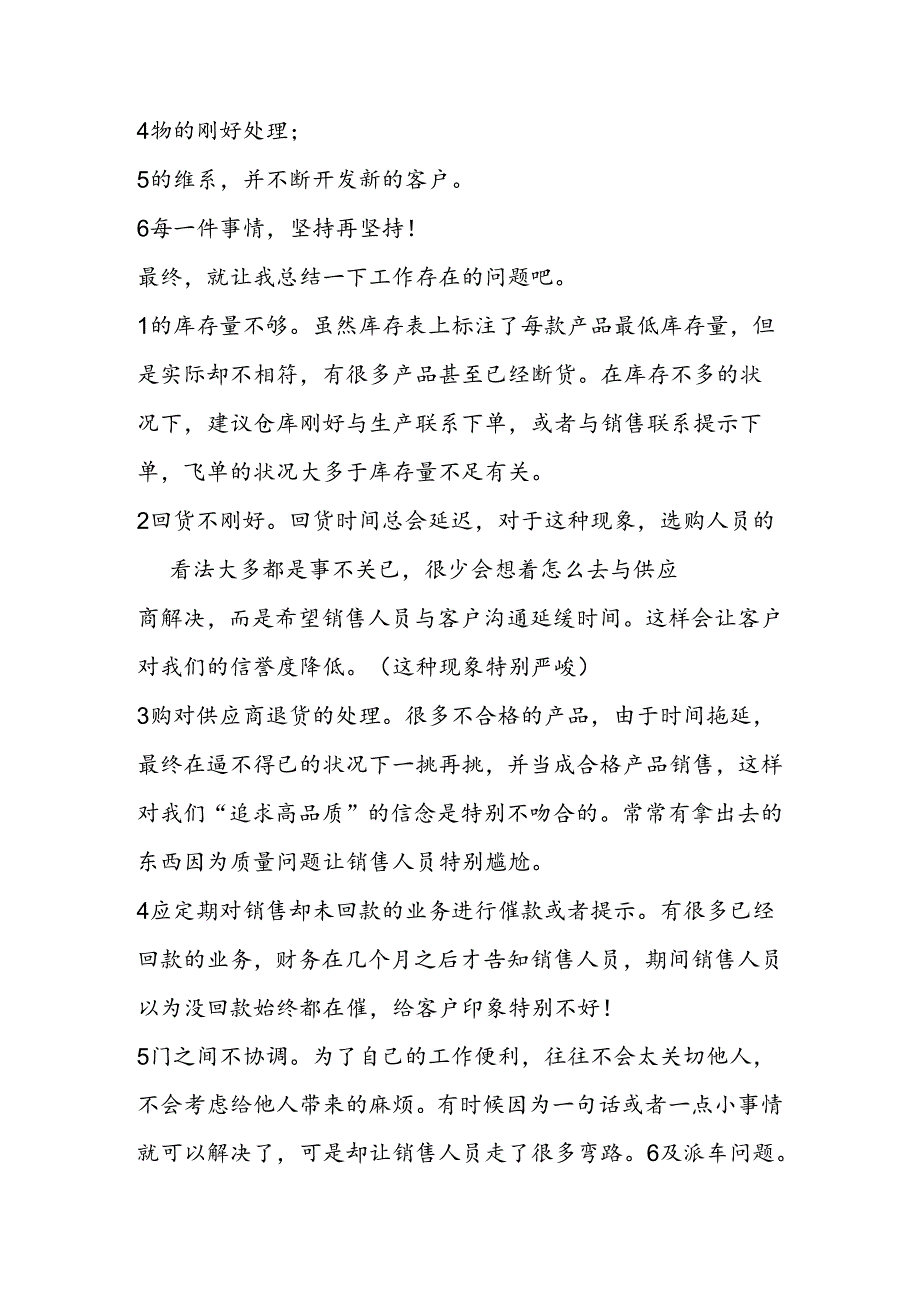 4物的刚好处理；
5的维系，并不断开发新的客户。
6每一件事情，坚持再坚持！
最终，就让我总结一下工作存在的问题吧。
1的库存量不够。虽然库存表上标注了每款产品最低库存量，但
是实际却不相符，有很多产品甚至已经断货。在库存不多的状
况下，建议仓库刚好与生产联系下单，或者与销售联系提示下
单，飞单的状况大多于库存量不足有关。
2回货不刚好。回货时间总会延迟，对于这种现象，选购人员的
看法大多都是事不关已，很少会想着怎么去与供应
商解决，而是希望销售人员与客户沟通延缓时间。这样会让客户
对我们的信誉度降低。（这种现象特别严峻）
3购对供应商退货的处理。很多不合格的产品，由于时间拖延，
最终在逼不得已的状况下一挑再挑，并当成合格产品销售，这样
对我们“追求高品质”的信念是特别不吻合的。常常有拿出去的
东西因为质量问题让销售人员特别尴尬。
4应定期对销售却未回款的业务进行催款或者提示。有很多已经
回款的业务，财务在几个月之后才告知销售人员，期间销售人员
以为没回款始终都在催，给客户印象特别不好！
5门之间不协调。为了自己的工作便利，往往不会太关切他人，
不会考虑给他人带来的麻烦。有时候因为一句话或者一点小事情
就可以解决了，可是却让销售人员走了很多弯路。6及派车问题。